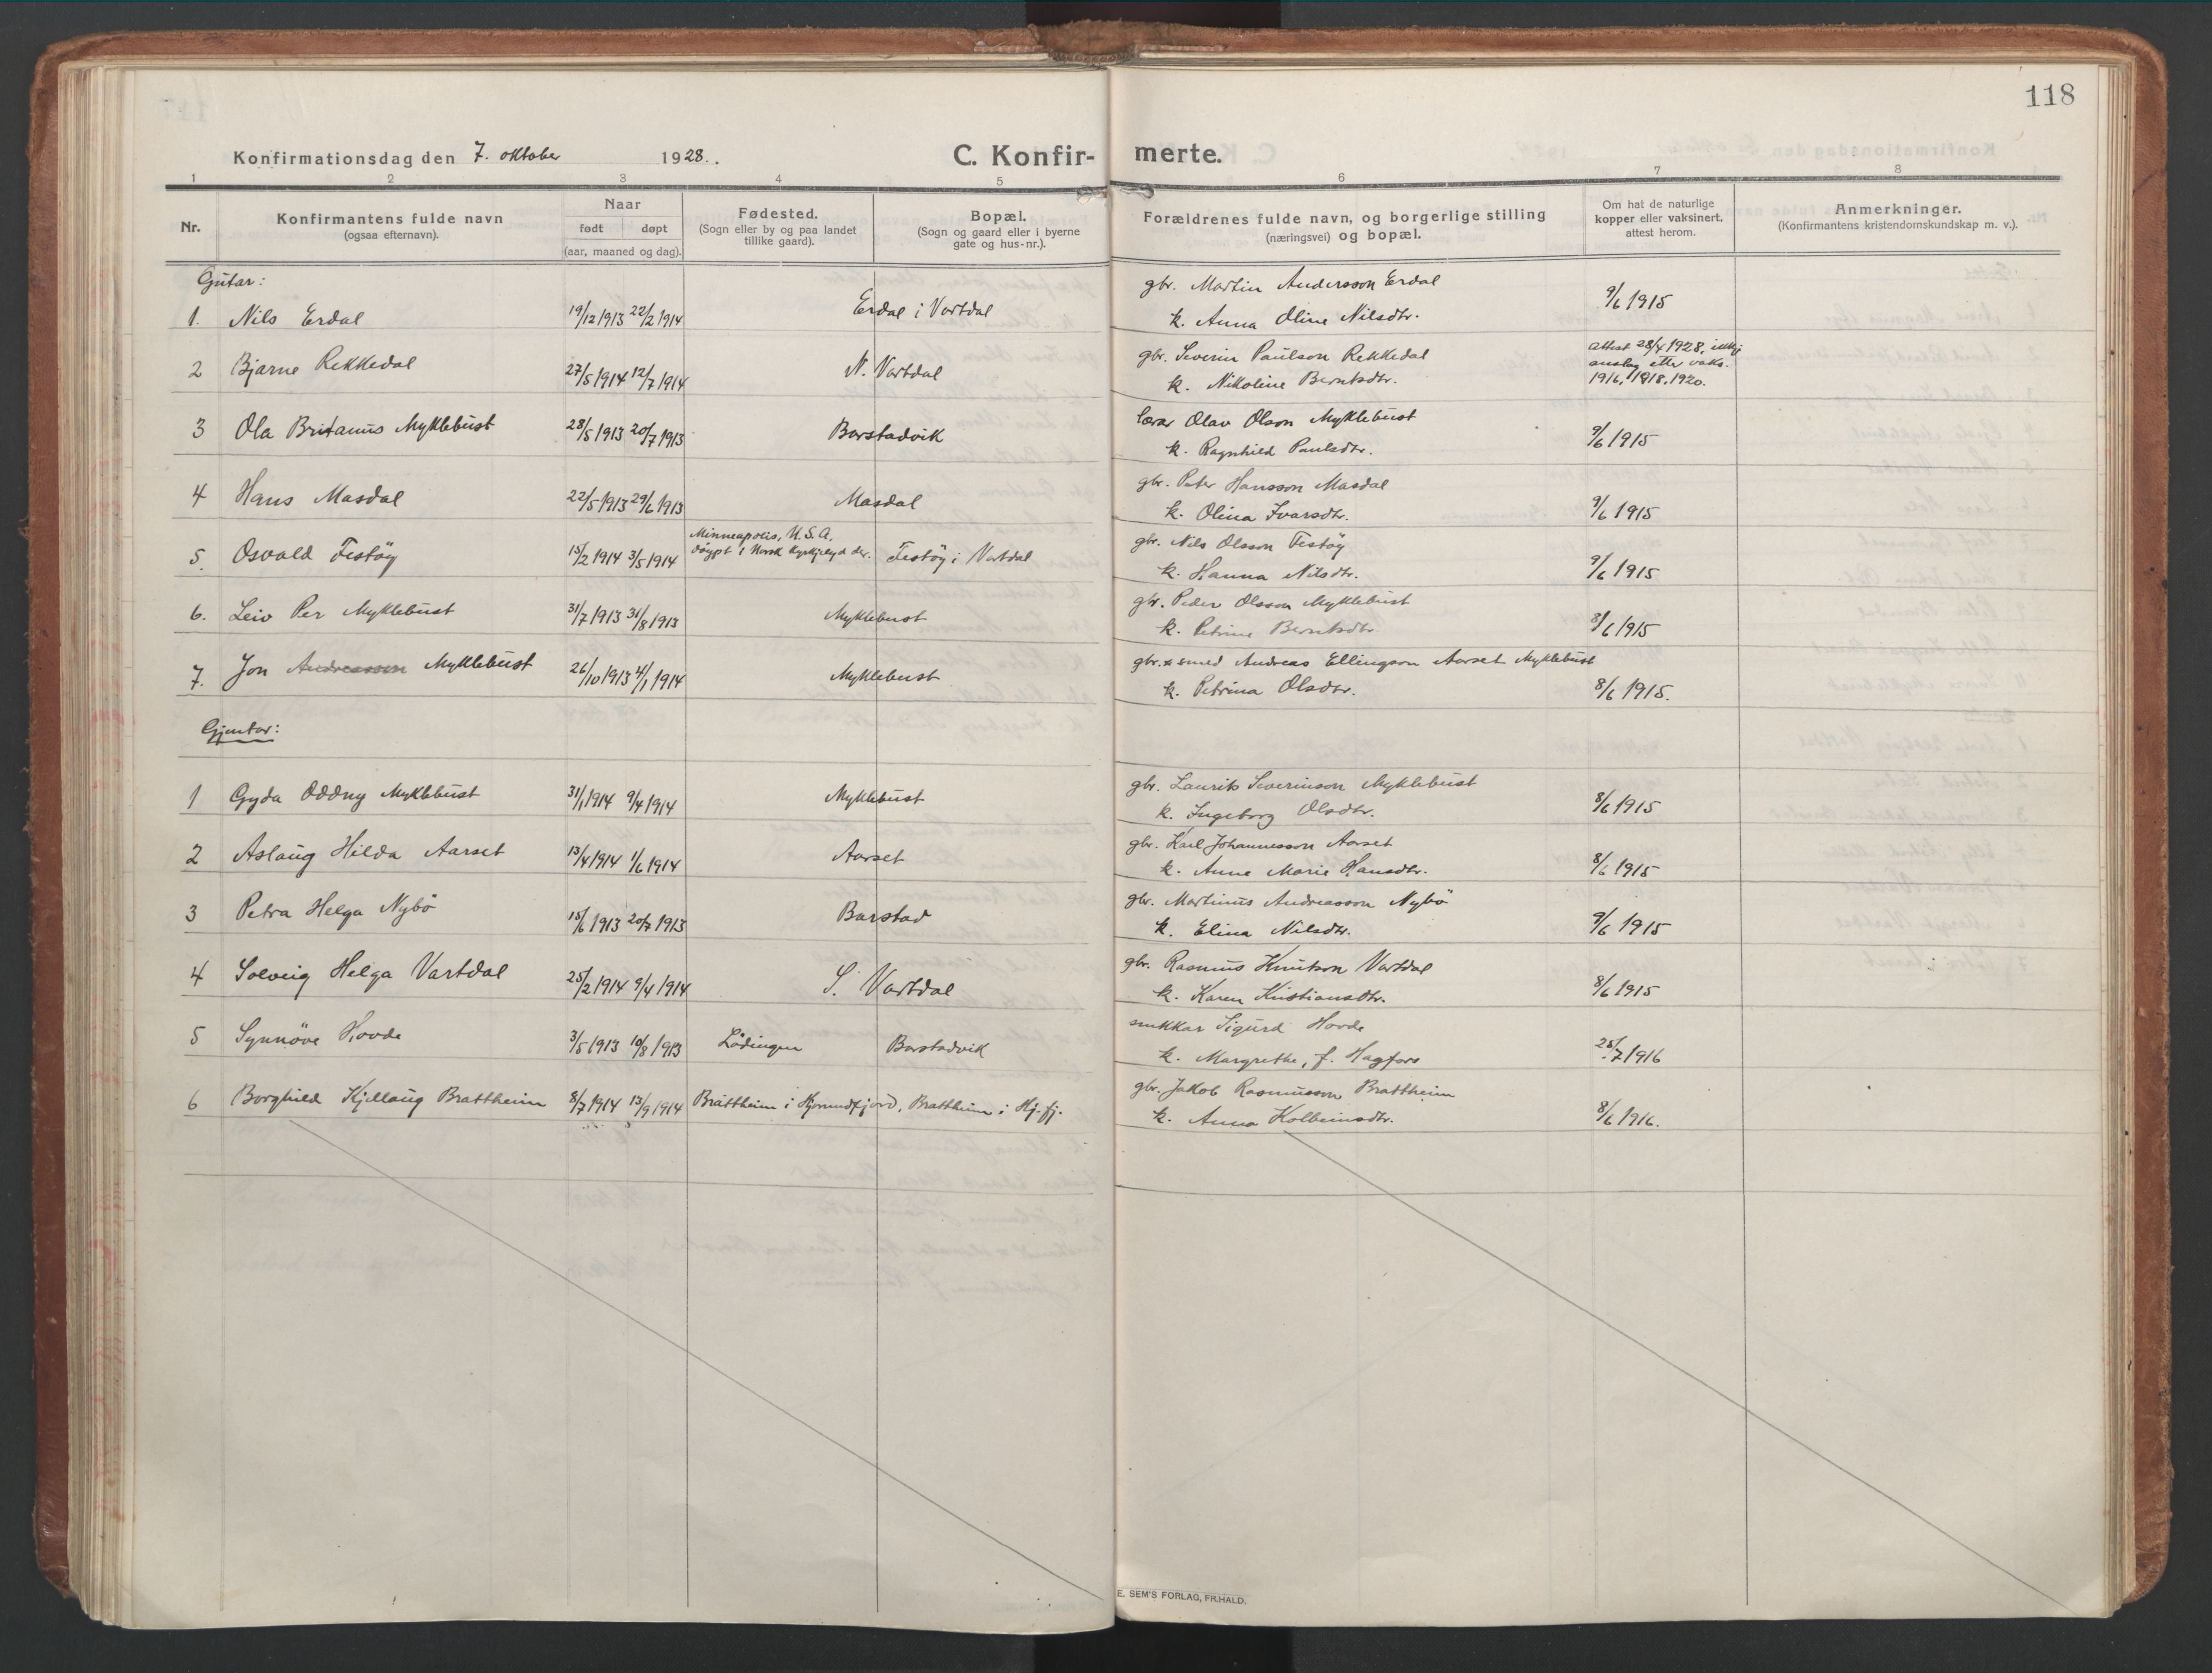 118
Konfirmationsdag den 7. oktober 1928.
C. Konfir- merte.
1 2 3 4 5 6 7 8
Nr.
Konfirmantens fulde navn
(ogsaa efternavn).
Naar
født døpt
(aar, maaned og dag).
Fødested.
(Sogn eller by og paa landet
tillike gaard).
Bopæl.
(Sogn og gaard eller i byerne
gate og hus-nr.).
Forældrenes fulde navn, og borgerlige stilling
(næringsvei) og bopæl.
Om hat de naturlige
kopper eller vaksinert,
attest herom.
Anmerkninger.
(Konfirmantens kristendomskundskap m. v.).
Gutar:
1. Nils Erdal 19/12 1913 22/2 1914 Erdal i Vartdal
gbr. Martin Andersson Erdal
k. Anna Oline Nilsdtr. 9/6 1915
2 Bjarne Rekkedal 27/5 1914 12/7 1914 N. Vartdal
gbr. Severin Paulson Rekkedal
k. Nikoline Berntsdtr.
Attest 28/4 1928, ikkj
anslag etter vaks.
1916, 1918, 1920.
3 Ola Britanus Myklebust 28/5 1913 20/7 1913 Barstadvik
lærar Olav Olson Myklebust
k. Ragnhild Paulsdtr. 9/6 1915
4 Hans Masdal 22/5 1913 29/6 1913 Masdal
gbr. Peter Hansson Masdal
k. Olina Ivarsdtr. 9/6 1915
5. Osvald Festöy 15/2 1914 3/5 1914
Minneapolis, U.S.A.
döypt i Norsk kyrkjelyd der.
Festöy i Vartdal
gbr. Nils Olsson Festöy
k. Hanna Nilsdtr. 9/6 1915
6. Leiv Per Myklebust 31/7 1913 31/8 1913 Myklebust
gbr. Peder Olsson Myklebust
k. Petrine Berntsdtr. 8/6 1915
7. Jon Andreasson Myklebust 26/10 1913 4/1 1914 Myklebust
gbr. & smed Andreas Ellingson Aarset Myklebust
k. Petrina Olsdtr. 8/6 1915.
Gjentor:
1 Gyda Oddny Myklebust 31/1 1914 9/4 1914 Myklebust
gbr. Laurits Severinson Myklebust
k. Ingeborg Olsdtr. 8/6 1915
2 Aslaug Hilda Aarset 13/4 1914 1/6 1914 Aarset
gbr. Karl Johannesson Aarset
k. Anne Marie Hansdtr. 8/6 1915
3 Petra Helga Nybö 15/6 1913 20/7 1913 Barstad
gbr. Martinus Andreasson Nybö
k. Elina Nilsdtr. 9/6 1915
4 Solveig Helga Vartdal 25/2 1914 9/4 1914 S. Vartdal
gbr. Rasmus Knutson Vartdal
k. Karen Kristiansdtr. 8/6 1915
5 Synnöve Hovde 3/5 1913 10/8 1913 Lödingen Barstadvik
snikkar Sigurd Hovde
k. Margrethe, f. Hagfors 25/7 1916
6 Borghild Kjellaug Brattheim 8/7 1914 13/9 1914 Brattheim i Hjorundfjord, Brattheim i Hj.fj.
gbr. Jakob Rasmusson Brattheim
k. Anna Kolbeinsdtr. 8/6 1916.
E. SEM'S FORLAG, FR.HALD.